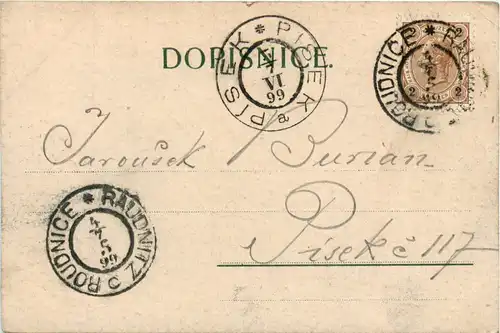 PISEK * PÍSEK a
VI
99
DOPISNICE.
ROUDNICE * RAUDNITZ
2 2
Jaroušek Burian
ROUDNICE * RAUDNITZ c
4
7
5
99
Písek č 117